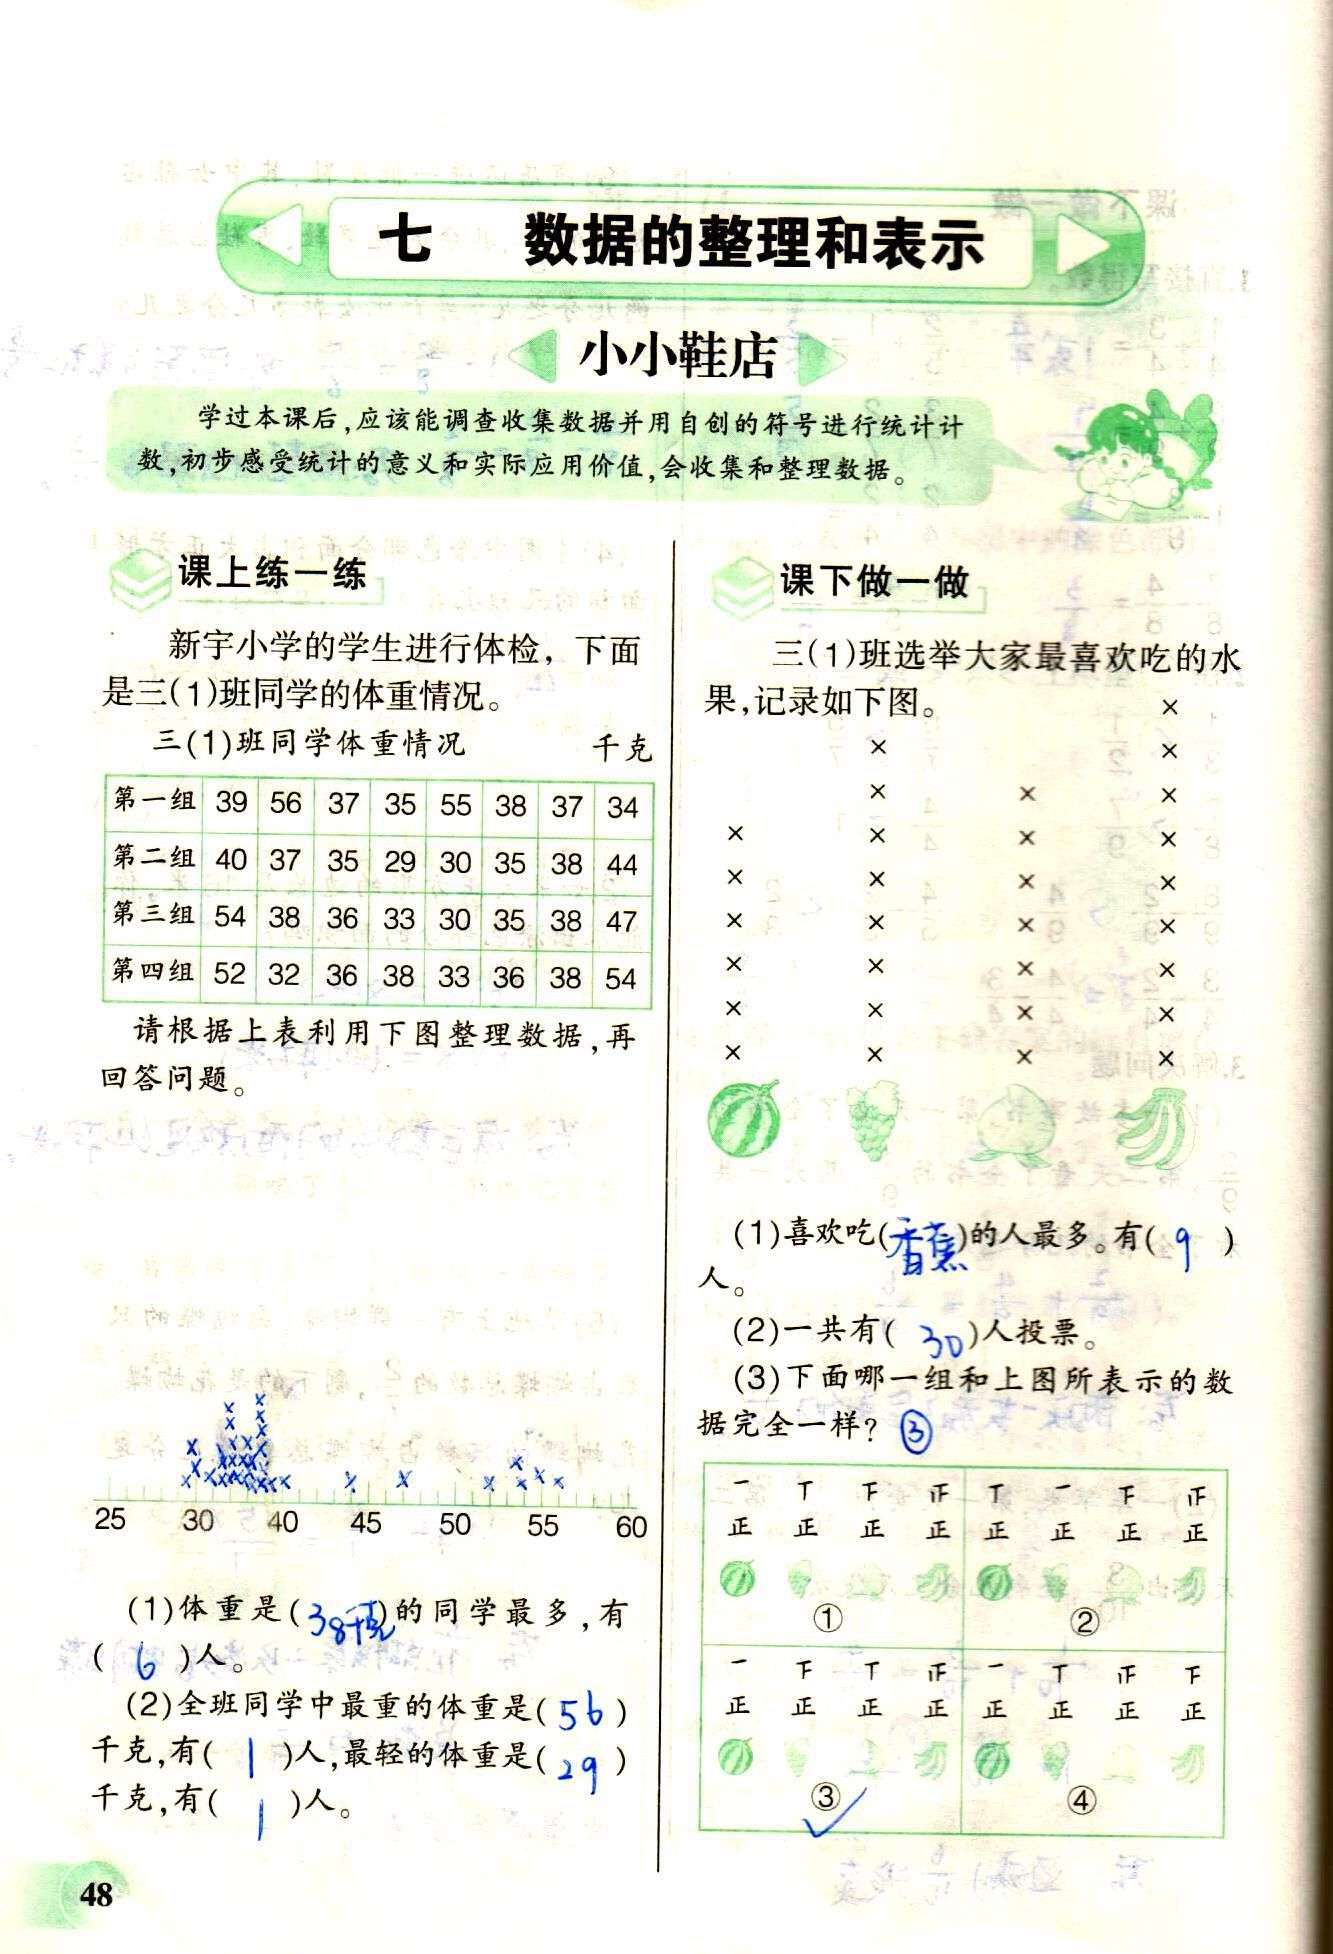 七 数据的整理和表示
小小鞋店
学过本课后,应该能调查收集数据并用自创的符号进行统计计
数,初步感受统计的意义和实际应用价值,会收集和整理数据。
课上练一练
新宇小学的学生进行体检,下面
是三(1)班同学的体重情况。
三(1)班同学体重情况 千克
第一组 39 56 37 35 55 38 37 34
第二组 40 37 35 29 30 35 38 44
第三组 54 38 36 33 30 35 38 47
第四组 52 32 36 38 33 36 38 54
请根据上表利用下图整理数据,再
回答问题。
25 30 40 45 50 55 60
(1)体重是(38千克)的同学最多,有
(6)人。
(2)全班同学中最重的体重是(56)
千克,有(1)人,最轻的体重是(29)
千克,有(1)人。
48
课下做一做
三(1)班选举大家最喜欢吃的水
果,记录如下图。
(1)喜欢吃(香蕉)的人最多。有(9)
人。
(2)一共有(30)人投票。
(3)下面哪一组和上图所表示的数
据完全一样? ③
正 正 正 正 正 正 正 正
① ②
正 正 正 正 正 正 正 正
③ ④